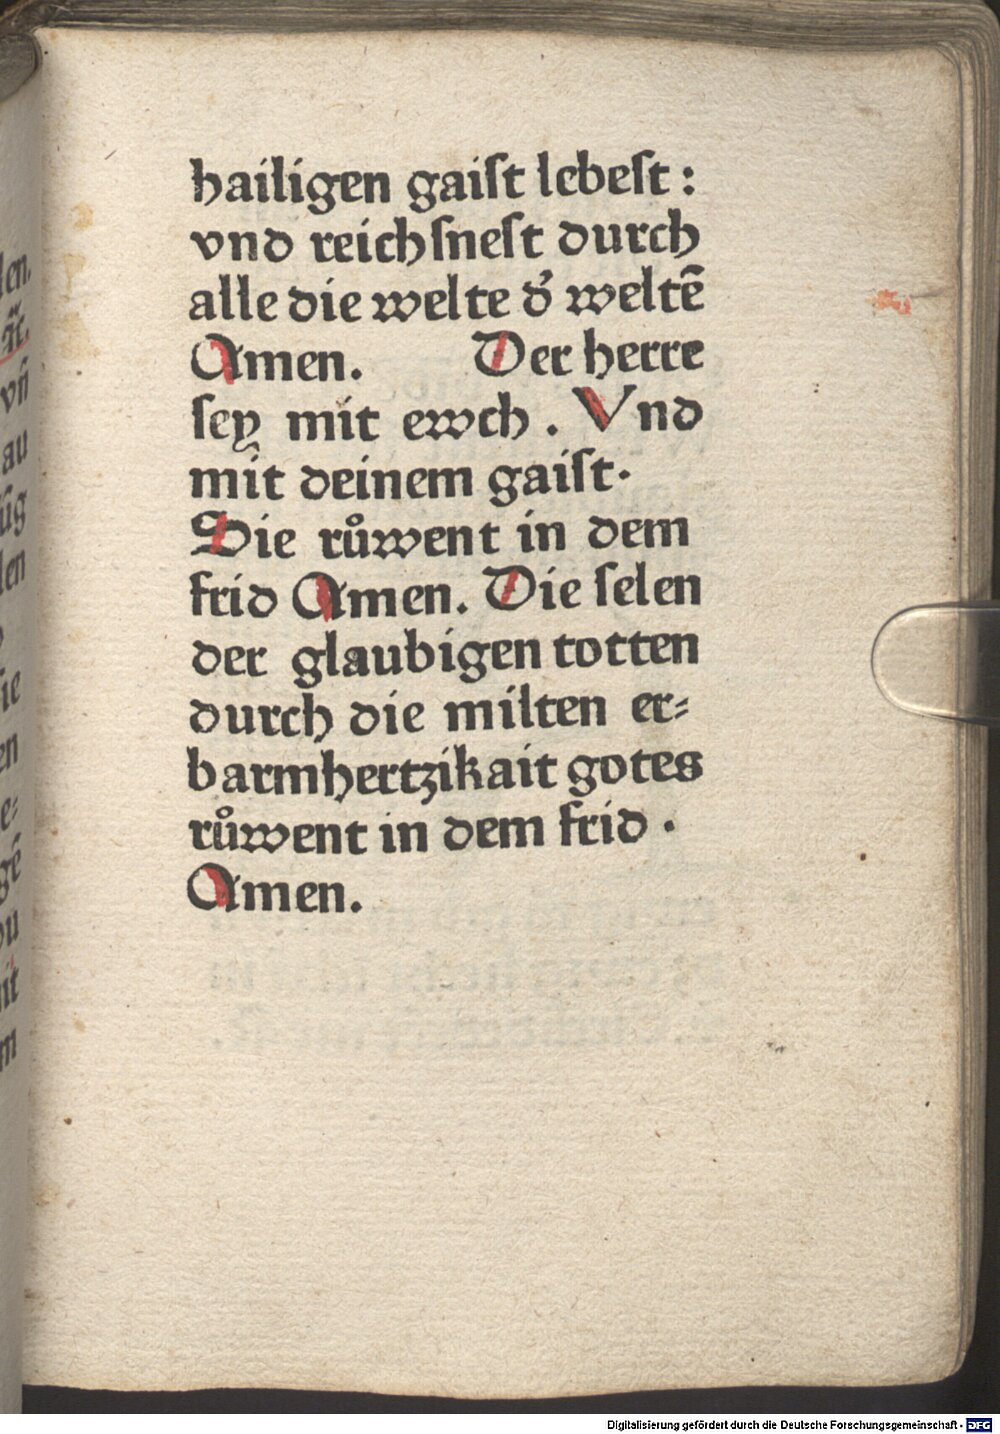 hailigen gaiſt lebeſt:
vnd reichſneſt durch
alle die welte d̕ weltē
Amen. Der herre
ſey mit ewch . Vnd
mit deinem gaiſt.
Die růwent in dem
frid Amen. Die ſelen
der glaubigen totten
durch die milten er⸗
barmhertzikait gotes
růwent in dem frid .
Amen.
Digitalisierung gefördert durch die Deutsche Forschungsgemeinschaft - DFG